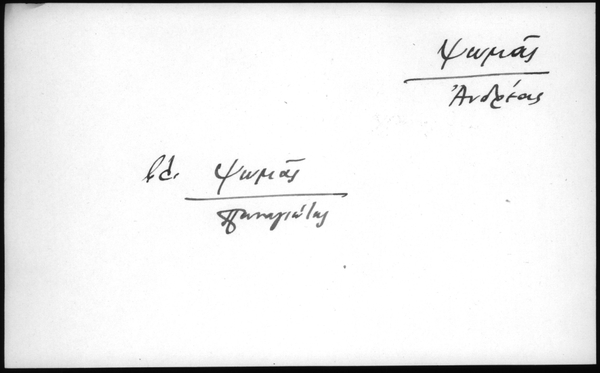 Ψωμᾶς
Ἀνδρέας
βλ. Ψωμᾶς
Παναγιώτας